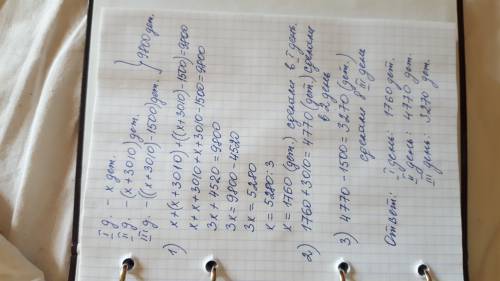 I д. - x дет.
II д. - (x+3010) дет.
III д. - ((x+3010)-1500) дет.
} 9800 дет.
1) x+(x+3010)+((x+3010)-1500)=9800
x+x+3010+x+3010-1500=9800
3x+4520=9800
3x=9800-4520
3x=5280
x=5280:3
x=1760 (дет.) сделали в I день.
2) 1760+3010=4770 (дет.) сделали
в 2 день
3) 4770-1500=3270 (дет.)
сделали в III день
Ответ: I день: 1760 дет.
II день: 4770 дет.
III день: 3270 дет.